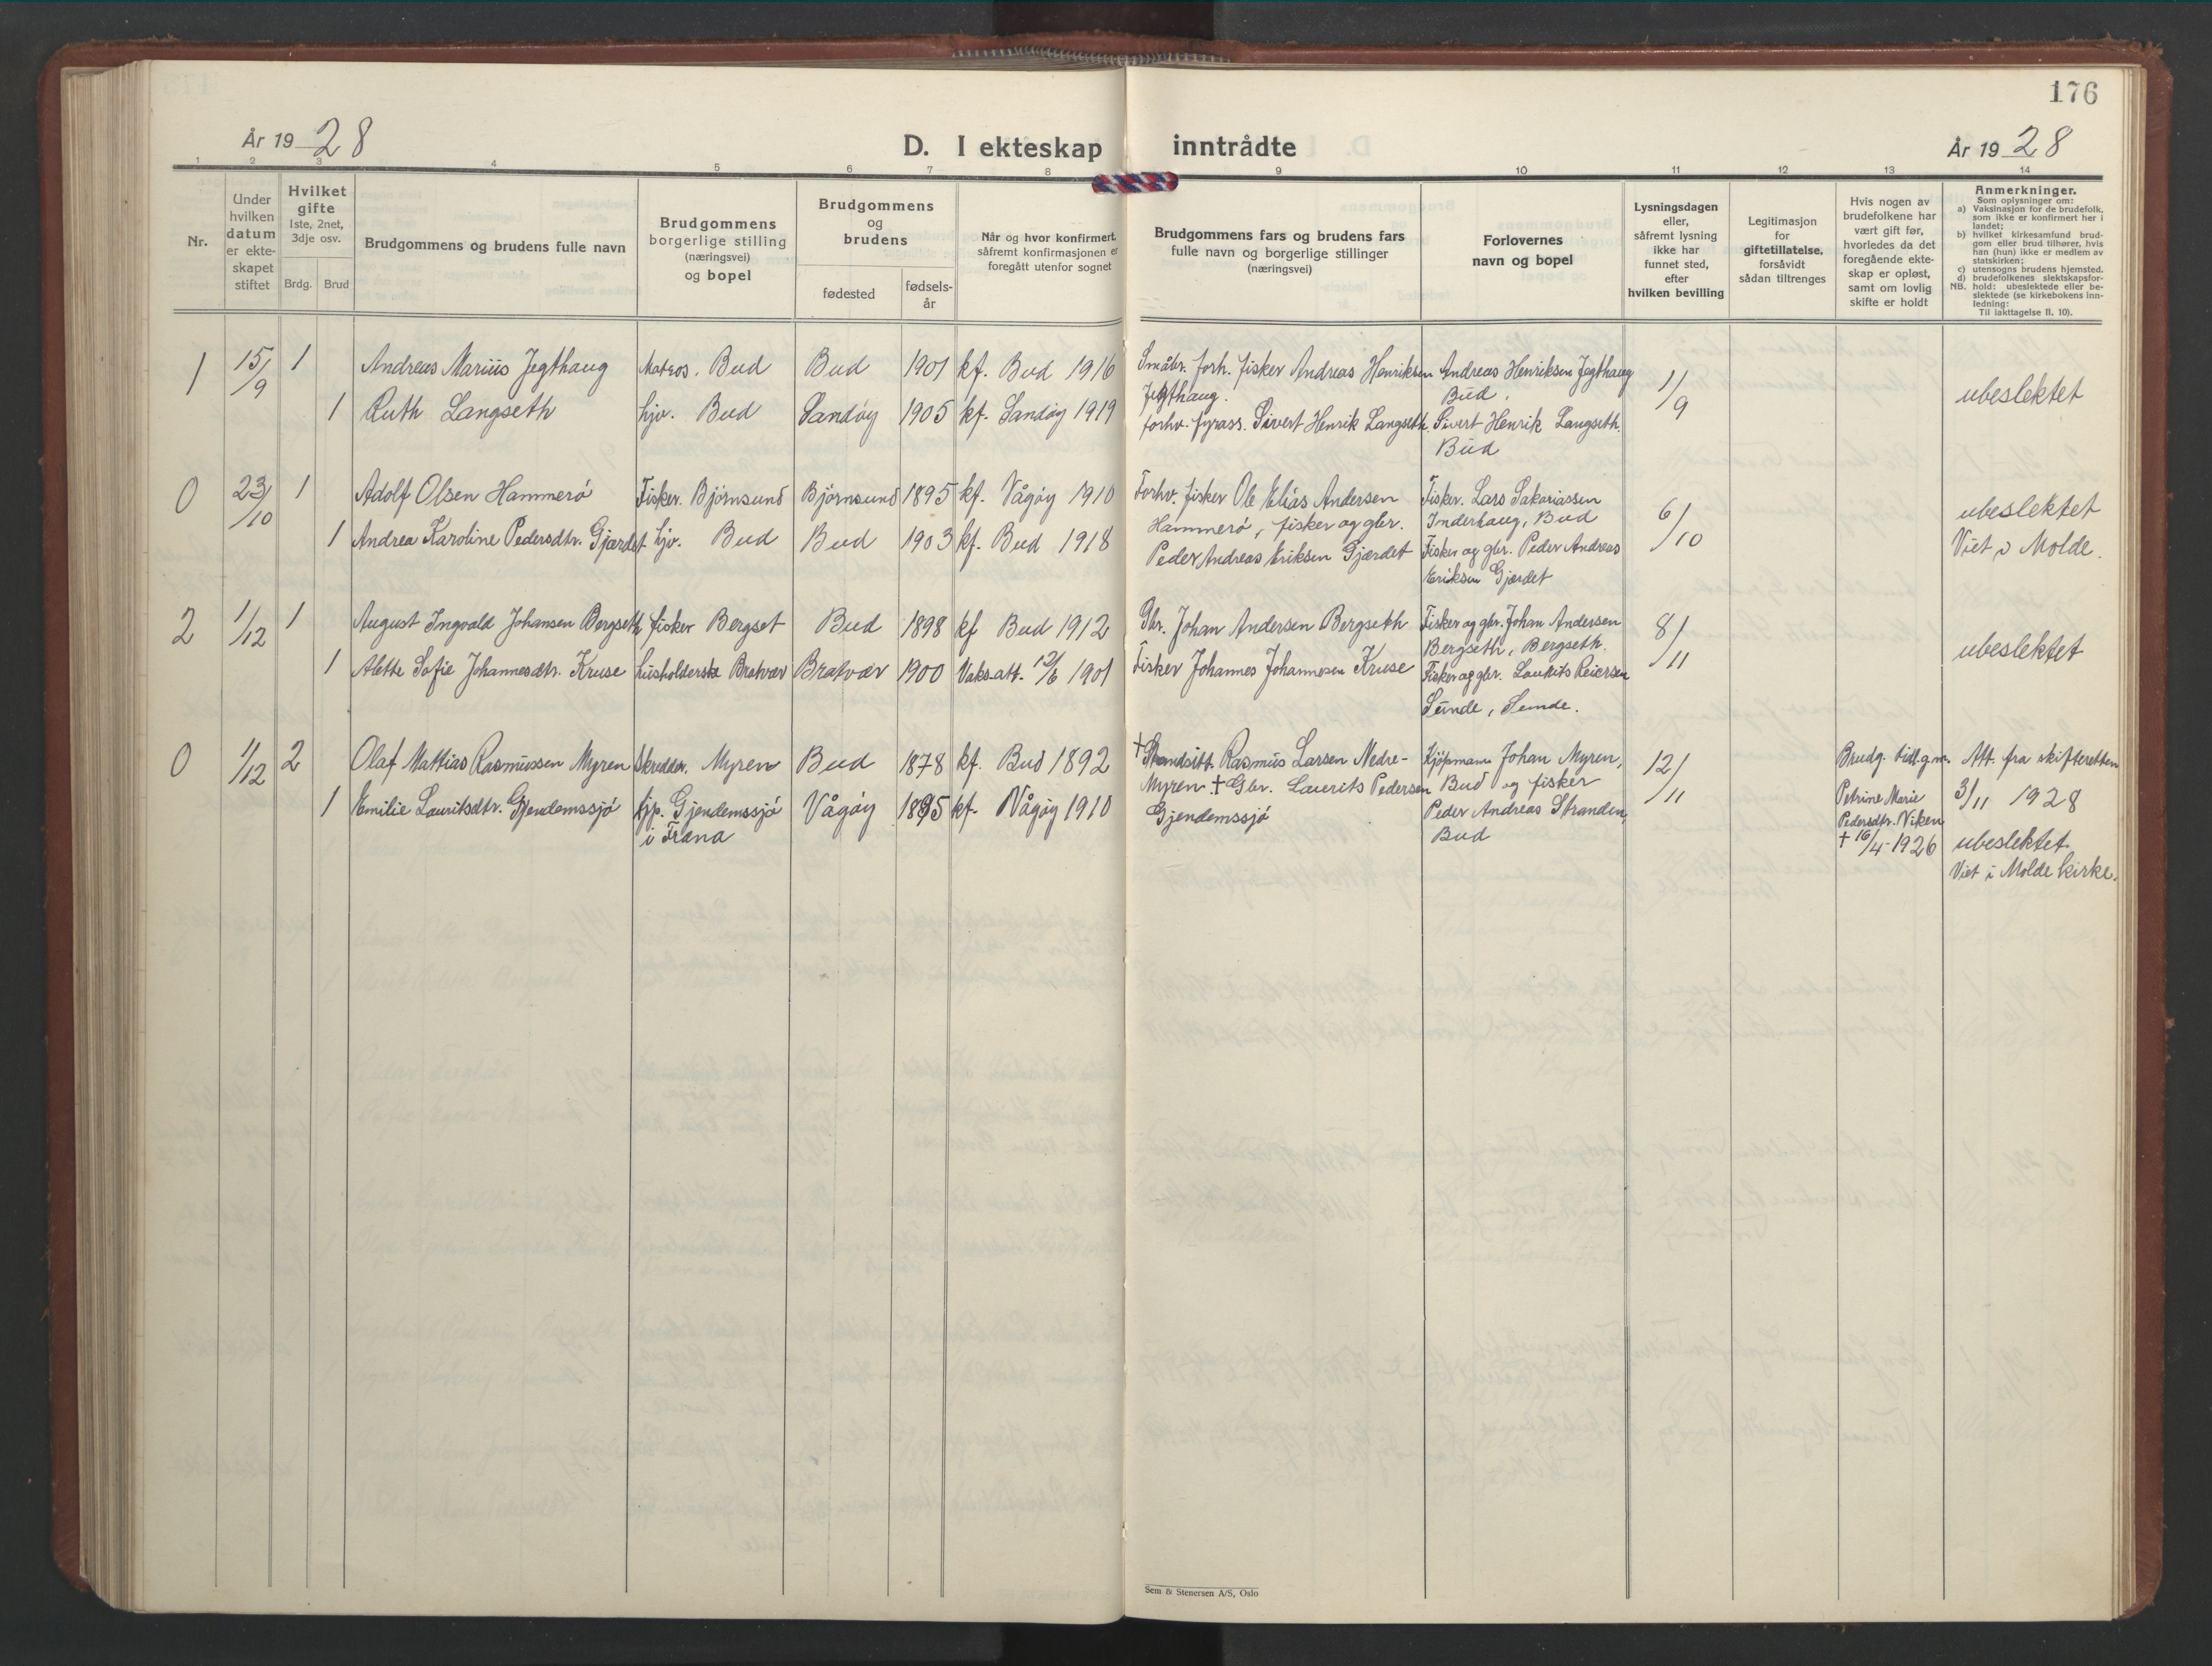 176
År 1928
D. I ekteskap inntrådte
År 1928
1 2 3 4 5 6 7 8 9 10 11 12 13 14
Nr.
Under
hvilken
datum
er ekte-
skapet
stiftet
Hvilket
gifte
1ste, 2net,
3dje osv.
Brdg. Brud
Brudgommens og brudens fulle navn
Brudgommens
borgerlige stilling
(næringsvei)
og bopel
Brudgommens
og
brudens
fødested
fødsels-
år
Når og hvor konfirmert
såfremt konfirmasjonen er
foregått utenfor sognet
Brudgommens fars og brudens fars
fulle navn og borgerlige stillinger
(næringsvei)
Forlovernes
navn og bopel
Lysningsdagen
eller,
såfremt lysning
ikke har
funnet sted,
efter
hvilken bevilling
Legitimasjon
for
giftetillatelse,
forsåvidt
sådan tiltrenges
Hvis nogen av
brudefolkene har
vært gift før,
hvorledes da det
foregående ekte-
skap er opløst,
samt om lovlig
skifte er holdt
Anmerkninger.
Som oplysninger om:
a) Vaksinasjon for de brudefolk,
som ikke er konfirmert her i
landet;
b) hvilket kirkesamfund brud-
gom eller brud tilhører, hvis
han (hun) ikke er medlem av
statskirken;
c) utensogns brudens hjemsted.
d) brudefolkenes slektskapsfor-
NB. hold: ubeslektede eller be-
slektede (se kirkebokens inn-
ledning:
Til iakttagelse II. 10).
1 15/9 1 Andreas Marius Jegthaug Matros. Bud Bud 1901 kf. Bud 1916
1 Ruth Langseth hjv. Bud Sandøy 1905 kf. Sandøy 1919
Småbr. forh. fisker Andreas Henriksen
Jegthaug.
forhv. fyrass. Sivert Henrik Langseth.
Andreas Henriksen Jegthaug
Bud.
Sivert Henrik Langseth.
Bud
1/9
ubeslektet
0 23/10 1 Adolf Olsen Hammerø Fisker. Bjørnsund Bjørnsund 1895 kf. Vågøy 1910
1 Andrea Karoline Pedersdtr. Gjærdet hjv. Bud Bud 1903 kf. Bud 1918
Forhv. fisker Ole Elias Andersen
Hammerø, fisker og gbr.
Peder Andreas Eriksen Gjærdet
Fisker. Lars Sakariassen
Inderhaug, Bud
Fisker og gbr. Peder Andreas
Eriksen Gjærdet
6/10
ubeslektet
Viet i Molde.
2 1/12 1 August Ingvald Johansen Bergseth fisker Bergset Bud 1898 kf Bud 1912
1 Alette Sofie Johannesdtr. Kruse husholderske Bratvær Bratvær 1900 Vaks.att. 12/6 1901
Gbr. Johan Andersen Bergseth
Fisker Johannes Johannesen Kruse
Fisker og gbr. Johan Andersen
Bergseth, Bergseth.
Fisker og gbr. Laurits Reiersen
Sunde, Sunde.
8/11
ubeslektet
0 1/12 2 Olaf Mattias Rasmussen Myren Skredder. Myren Bud 1878 kf. Bud 1892
1 Emilie Lauritsdtr. Gjendemssjø Gjendemssjø Vågøy 1895 kf. Vågøy 1910
i Fræna
† Strandsitt. Rasmus Larsen Nedre-
Myren. † Gbr. Laurits Pedersen
Gjendemssjø
Kjøpmann Johan Myren,
Bud og fisker
Peder Andreas Stranden,
Bud
12/11
Brudg. tidl. g.m.
Petrine Marie
Pedersdtr. Viken
† 16/4-1926
Att. fra skifteretten
3/11 1928
ubeslektet.
Viet i Molde kirke.
Sem & Stenersen A/S, Oslo